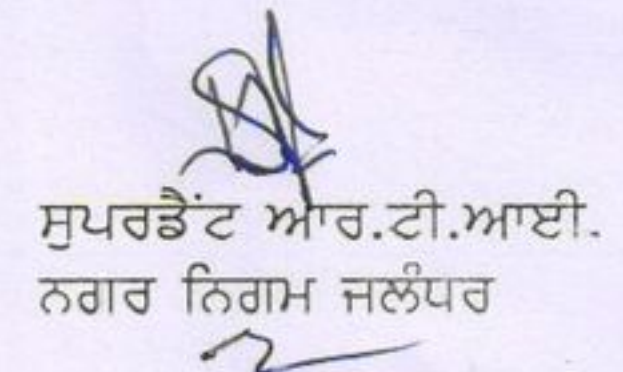 ਸੁਪਰਡੈਂਟ ਆਰ.ਟੀ.ਆਈ.
ਨਗਰ ਨਿਗਮ ਜਲੰਧਰ